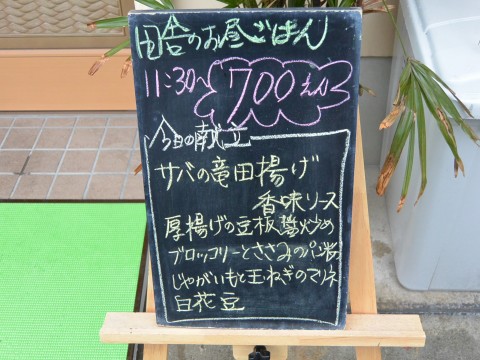 田舎のお昼ごはん
11:30〜 700えん
今日の献立
サバの竜田揚げ
香味ソース
厚揚げの豆板醤炒め
ブロッコリーとささみのパン粉
じゃがいもと玉ねぎのマリネ
白花豆